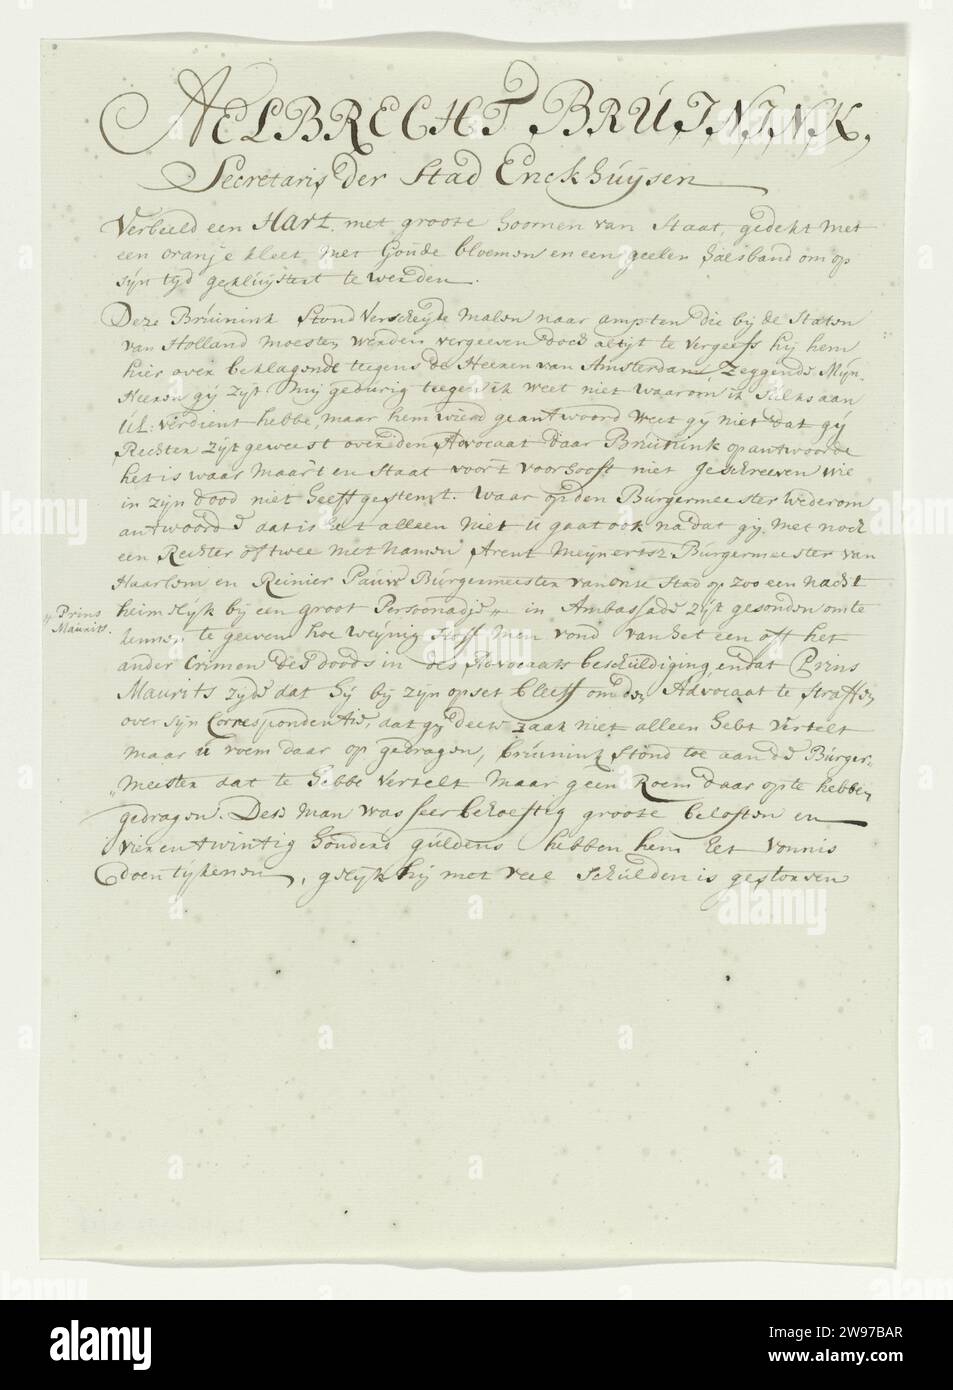 AELBRECHT BRUININK,
Secretaris der Stad Enckhuijsen
Verbeeld een Hart, met groote hoornen van Staat, gedekt met
een oranje kleet, met Goude bloemen en een geelen halsband om op
sijn tijd gekluijstert te werden.
Deze Bruinink stond verscheijde malen naar ampten die bij de Staten
van Holland moesten werden vergeeven doch altijt te vergeefs hij hem
hier over beklagende teegens de Heeren van Amsterdam Zeggende Mijn
Heeren gij zijt mij gedurig teegen ik weet niet waarom ik sulks aan
UL: verdient hebbe, maar hem wierd geantwoord weet gij niet dat gij
Rechter zijt geweest over den Advocaat daar Bruinink op antwoorde
het is waar maar't en staat voor't voorhooft niet geschreeven wie
in zijn dood niet heeft gestemt. waar op den Burgermeester wederom
antwoorde dat is het alleen niet u gaat ook na dat gij met noch
een Rechter of twee met namen Arent Meijnertsz Burgermeester van
Haarlem en Reinier Pauw Burgermeester van onse Stad op zoo een nacht
heimelijk bij een groot Persoonadje „ in Ambassade zijt gesonden om te
„ Prins
Maurits.
kennen te geeven hoe weijnig stoff men vond van het een off het
ander Crimen des doods in des Advocaats beschuldiging en dat Prins
Maurits zijde dat hij bij zijn opset bleeff om den Advocaat te straffen
over sijn Correspondentie, dat gij deese zaak niet alleen hebt vertelt
maar u roem daar op gedragen, bruinink stond toe aan de Burger„
„meester dat te hebbe vertelt maar geen Roem daar op te hebben
gedragen. Dese man was seer behoeftig groote beloften en
vierentwintig honderd guldens hebben hem het vonnis
doen tijkenen, gelijk hij met veel schulden is gestorven
alamy
Image ID: 2W97BAR
www.alamy.com